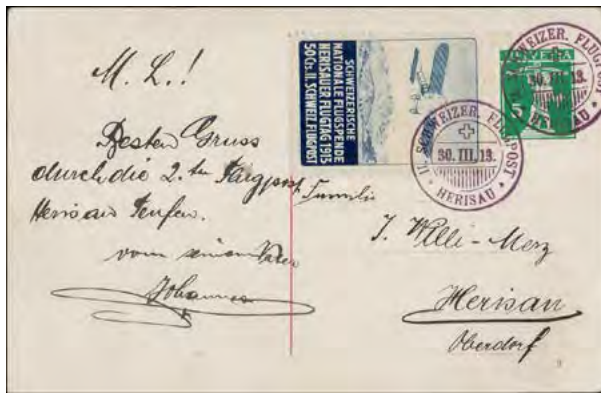 M. L.!
Besten Gruss
durch die 2. te Flugpost
Herisau Teufen.
vom
Johannes
SCHWEIZERISCHE
NATIONALE FLUGSPENDE
HERISAUER FLUGTAG 1913
50 Cts. II. SCHWEIZ. FLUGPOST
HELVETIA
5
II. SCHWEIZER. FLUGPOST
30. III. 13.
HERISAU
II. SCHWEIZER. FLUGPOST
30. III. 13.
HERISAU
Familie
J. Willi-Merz
Herisau
Oberdorf